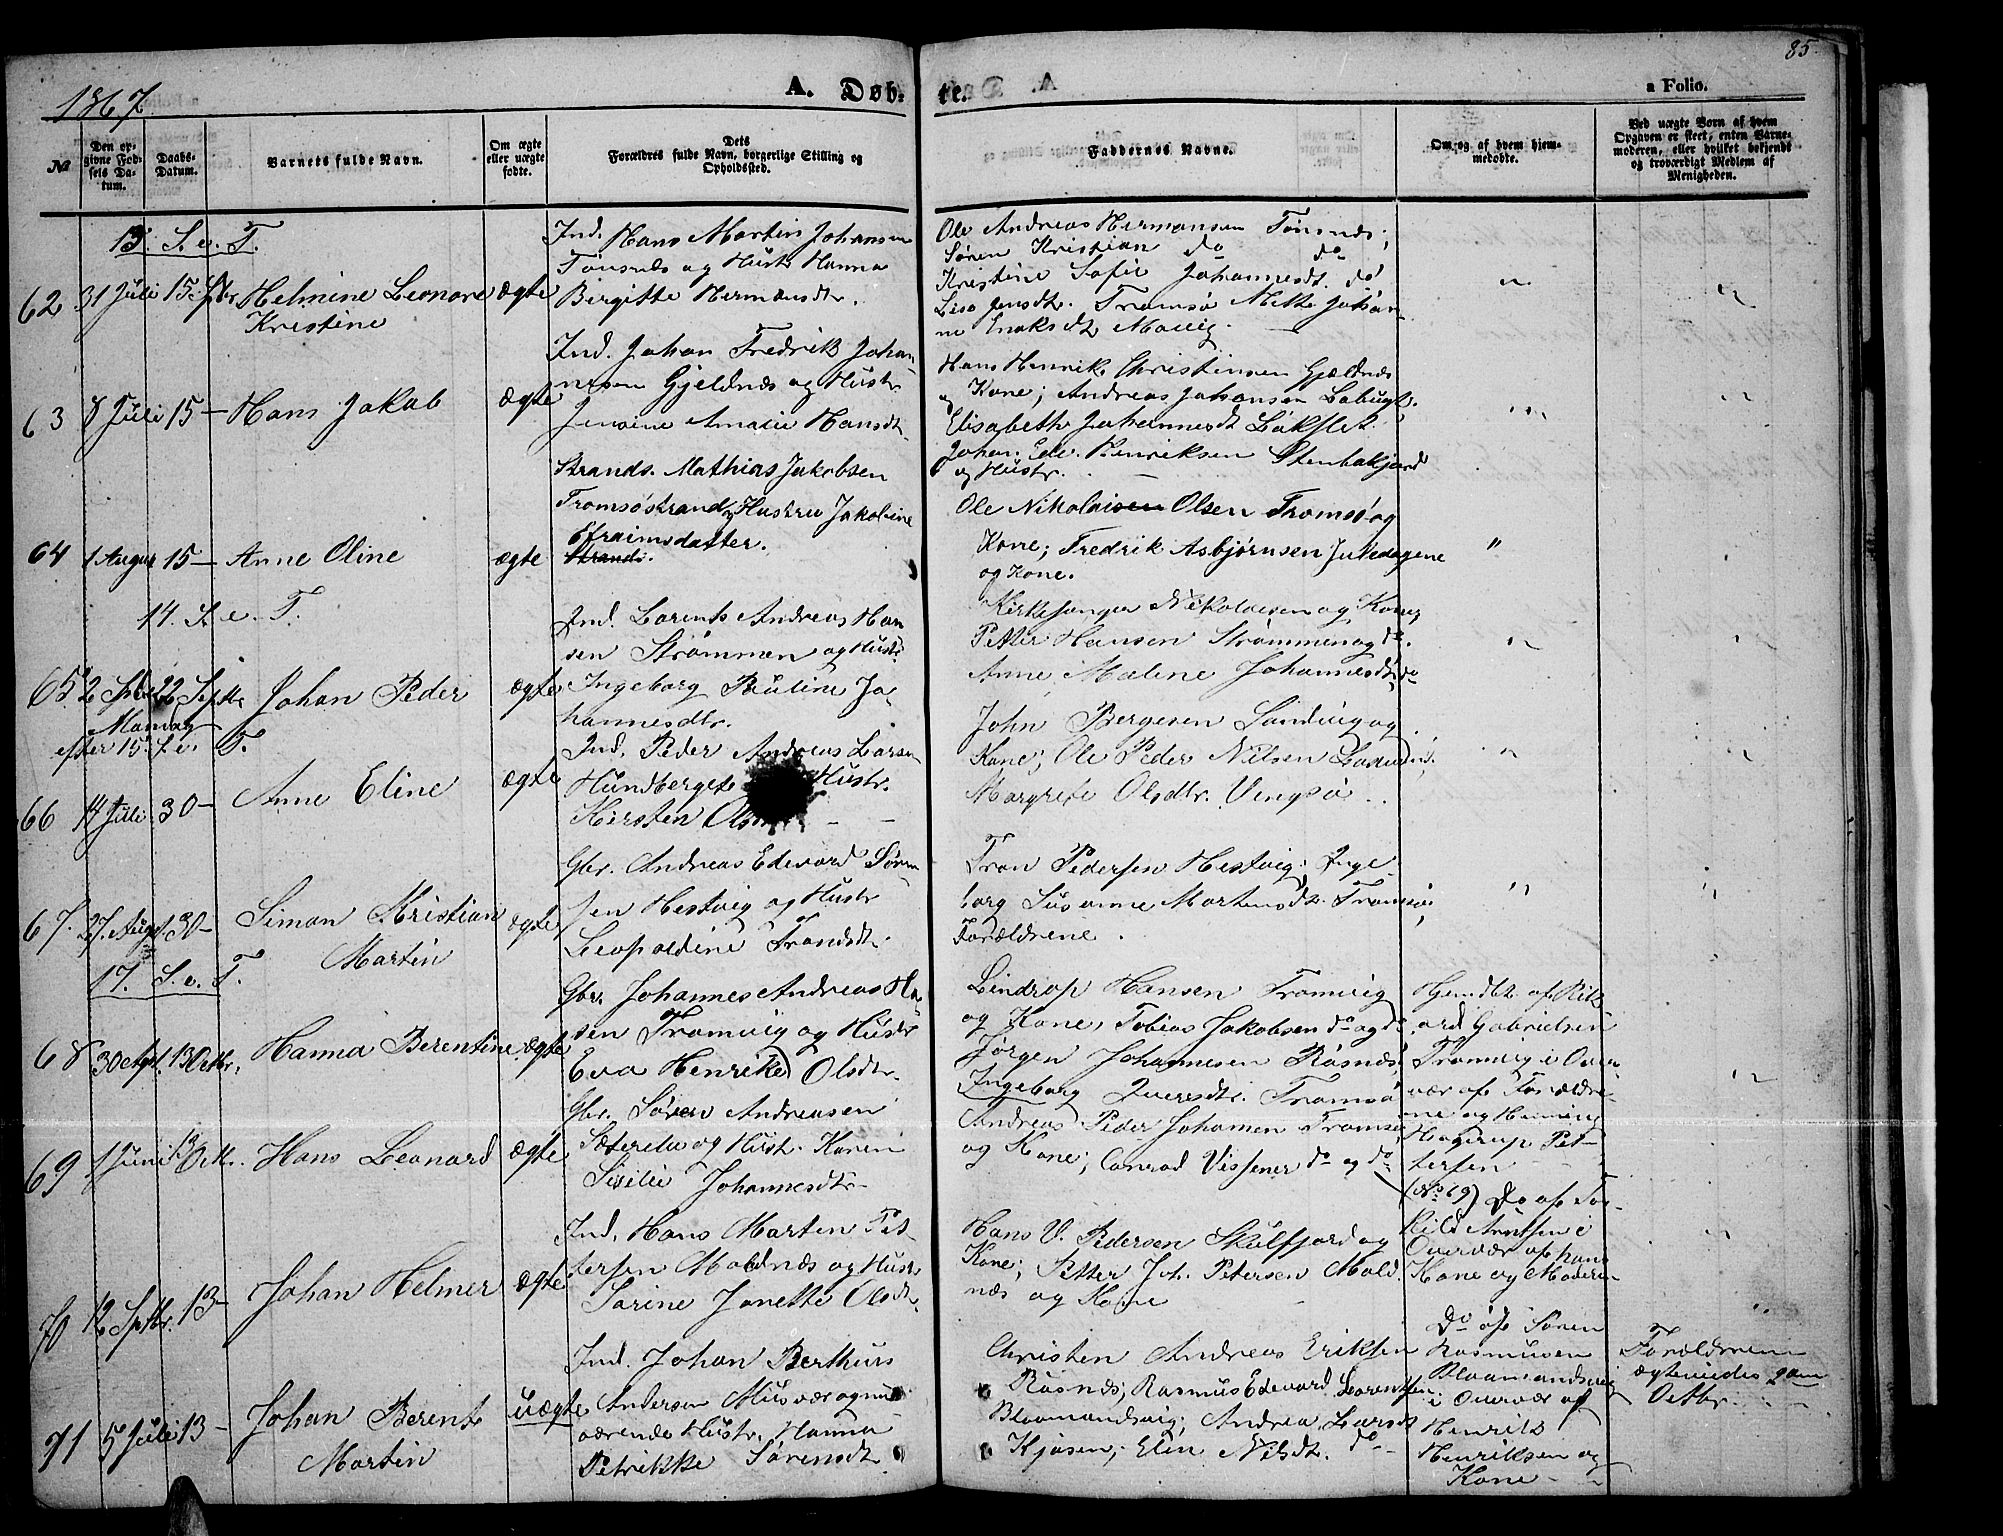 85.
1867
A. Døb-
te.
a Folio.
№
Den op-
givne Fød-
sels Da-
tum.
Daabs-
Datum.
Barnets fulde Navn.
Om ægte
eller uægte
fødte.
Dets
Forældres fulde Navn, borgerlige Stilling og
Opholdssted.
Faddernes Navne.
Om og af hvem hjem-
medøbte.
Ved uægte Børn af hvem
Opgaven er skeet, enten Barne-
moderen, eller hvilket bekjendt
og troværdigt Medlem af
Menigheden.
13. S. e. T.
62
31 Juli
15 Sptbr
Helmine Leonore
Kristine
ægte
Ind. Hans Martin Johansen
Tønsnes og Hustr Hanna
Birgitte Hermansdtr.
Ole Andreas Hermansen Tønsnes;
Søren Kristian do do
Kristine Sofie Johannesdt. do
Lise Jensdt. Tromsø Mette Johan-
ne Enoksdt. Movig.
"
"
63
8 Juli
15 —
Hans Jakob
ægte
Ind. Johan Fredrik Johan-
nesen Gjeldnes og Hustr
Jensine Amalie Hansdt.
Hans Henrik Christensen Gjældnes
og Kone; Andreas Johansen Labugt.
Elisabeth Johannesdt Lökslet
Johan Edv. Henriksen Stenbakjord
og Hustr.
"
"
64
1 August
15 —
Anne Oline
ægte
Strands. Mathias Jakobsen
Tromsøstrand og Hustru Jakobine
Efraimsdatter.
Strands.
Ole Nikolaisen Olsen Tromsø og
Kone; Fredrik Asbjørnsen Jukedagene
og Kone.
"
14. S. e. T.
65
2 Sptbr
22 Septbr
Johan Peder
ægte
Ind. Lorents Andreas Han
sen Strømmen og Hustr.
Ingeborg Pauline Jo-
hannesdtr.
Kirkesanger Nikolaisen og Kone;
Petter Hansen Strømmen og do.
Anne Malene Johannesdt. do
"
Mandag
efter 15. S. e. T.
66
14 Juli
30 —
Anne Eline
ægte
Ind. Peder Andreas Larsen
Hundberget Hustr.
Kirsten
John Bergesen Sandvig og
Kone; Ole Peder Nilsen
Margrete Olsdtr. Vengsø.
"
"
67.
27. Augst
30 —
Simon Kristian
Martin
ægte
Gbr. Andreas Edevard Søren-
sen Hestvig og Hustr
Leopoldine Trondsdt.
Tron Pedersen Hestvig; Inge-
borg Susanne Mortensdt. Tromsø;
Forældrene.
"
"
17. S. e. T.
68
30 Augst.
13 Octbr.
Hanna Berentine
ægte
Gbr. Johannes Andreas Han
sen Tromvig og Hustr
Eva Henrikke Olsdtr.
Lindrop Hansen Tromvig
og Kone, Tobias Jakobsen do og do
Jørgen Johannesen Risnæs;
Ingeborg Iversdtr. Tromsø
Hjemdbt. af Rik
ard Gabrielsen
Tromvig i Over-
vær af Forældre-
ne og Henning
Hagerup Pet-
tersen
"
69
1 Juni
13 Octbr.
Hans Leonard
ægte
Gbr. Søren Andreasen
Sæterelv og Hustr. Karen
Sisilie Johannesdtr
Andreas Peder Johansen Tromsø
og Kone; Conrad Vissener do og do
(No 69) Do af Tor-
kild Arntsen i
Overvær af hans
Kone og Moderen
"
70
12 Sptbr.
13 —
Johan Helmer
ægte
Ind. Hans Morten Pet-
tersen Moldnæs og Hustr
Sarine Janette Olsdt.
Hans V. Pedersen Skulfjord og
Kone; Petter Joh. Petersen Mold-
næs og Kone
"
71
5 Juli
13 —
Johan Berent
Martin
uægte
Ind. Johan Berthæus
Andersen Musvær og nu-
værende Hustr. Hanna
Petrikke Sørensdt
Christen Andreas Eriksen
Risnæs; Rasmus Edevard Lorentsen
Blaamandsvig; Andrea Larsdt
Kjosen; Elen Nilsdt. do
Do af Søren
Rasmusen
Blaamandsvig
i Overvær af
Henrik
Henriksen og
Kone —
Forældrene
ægteviedes 2den
Octbr.